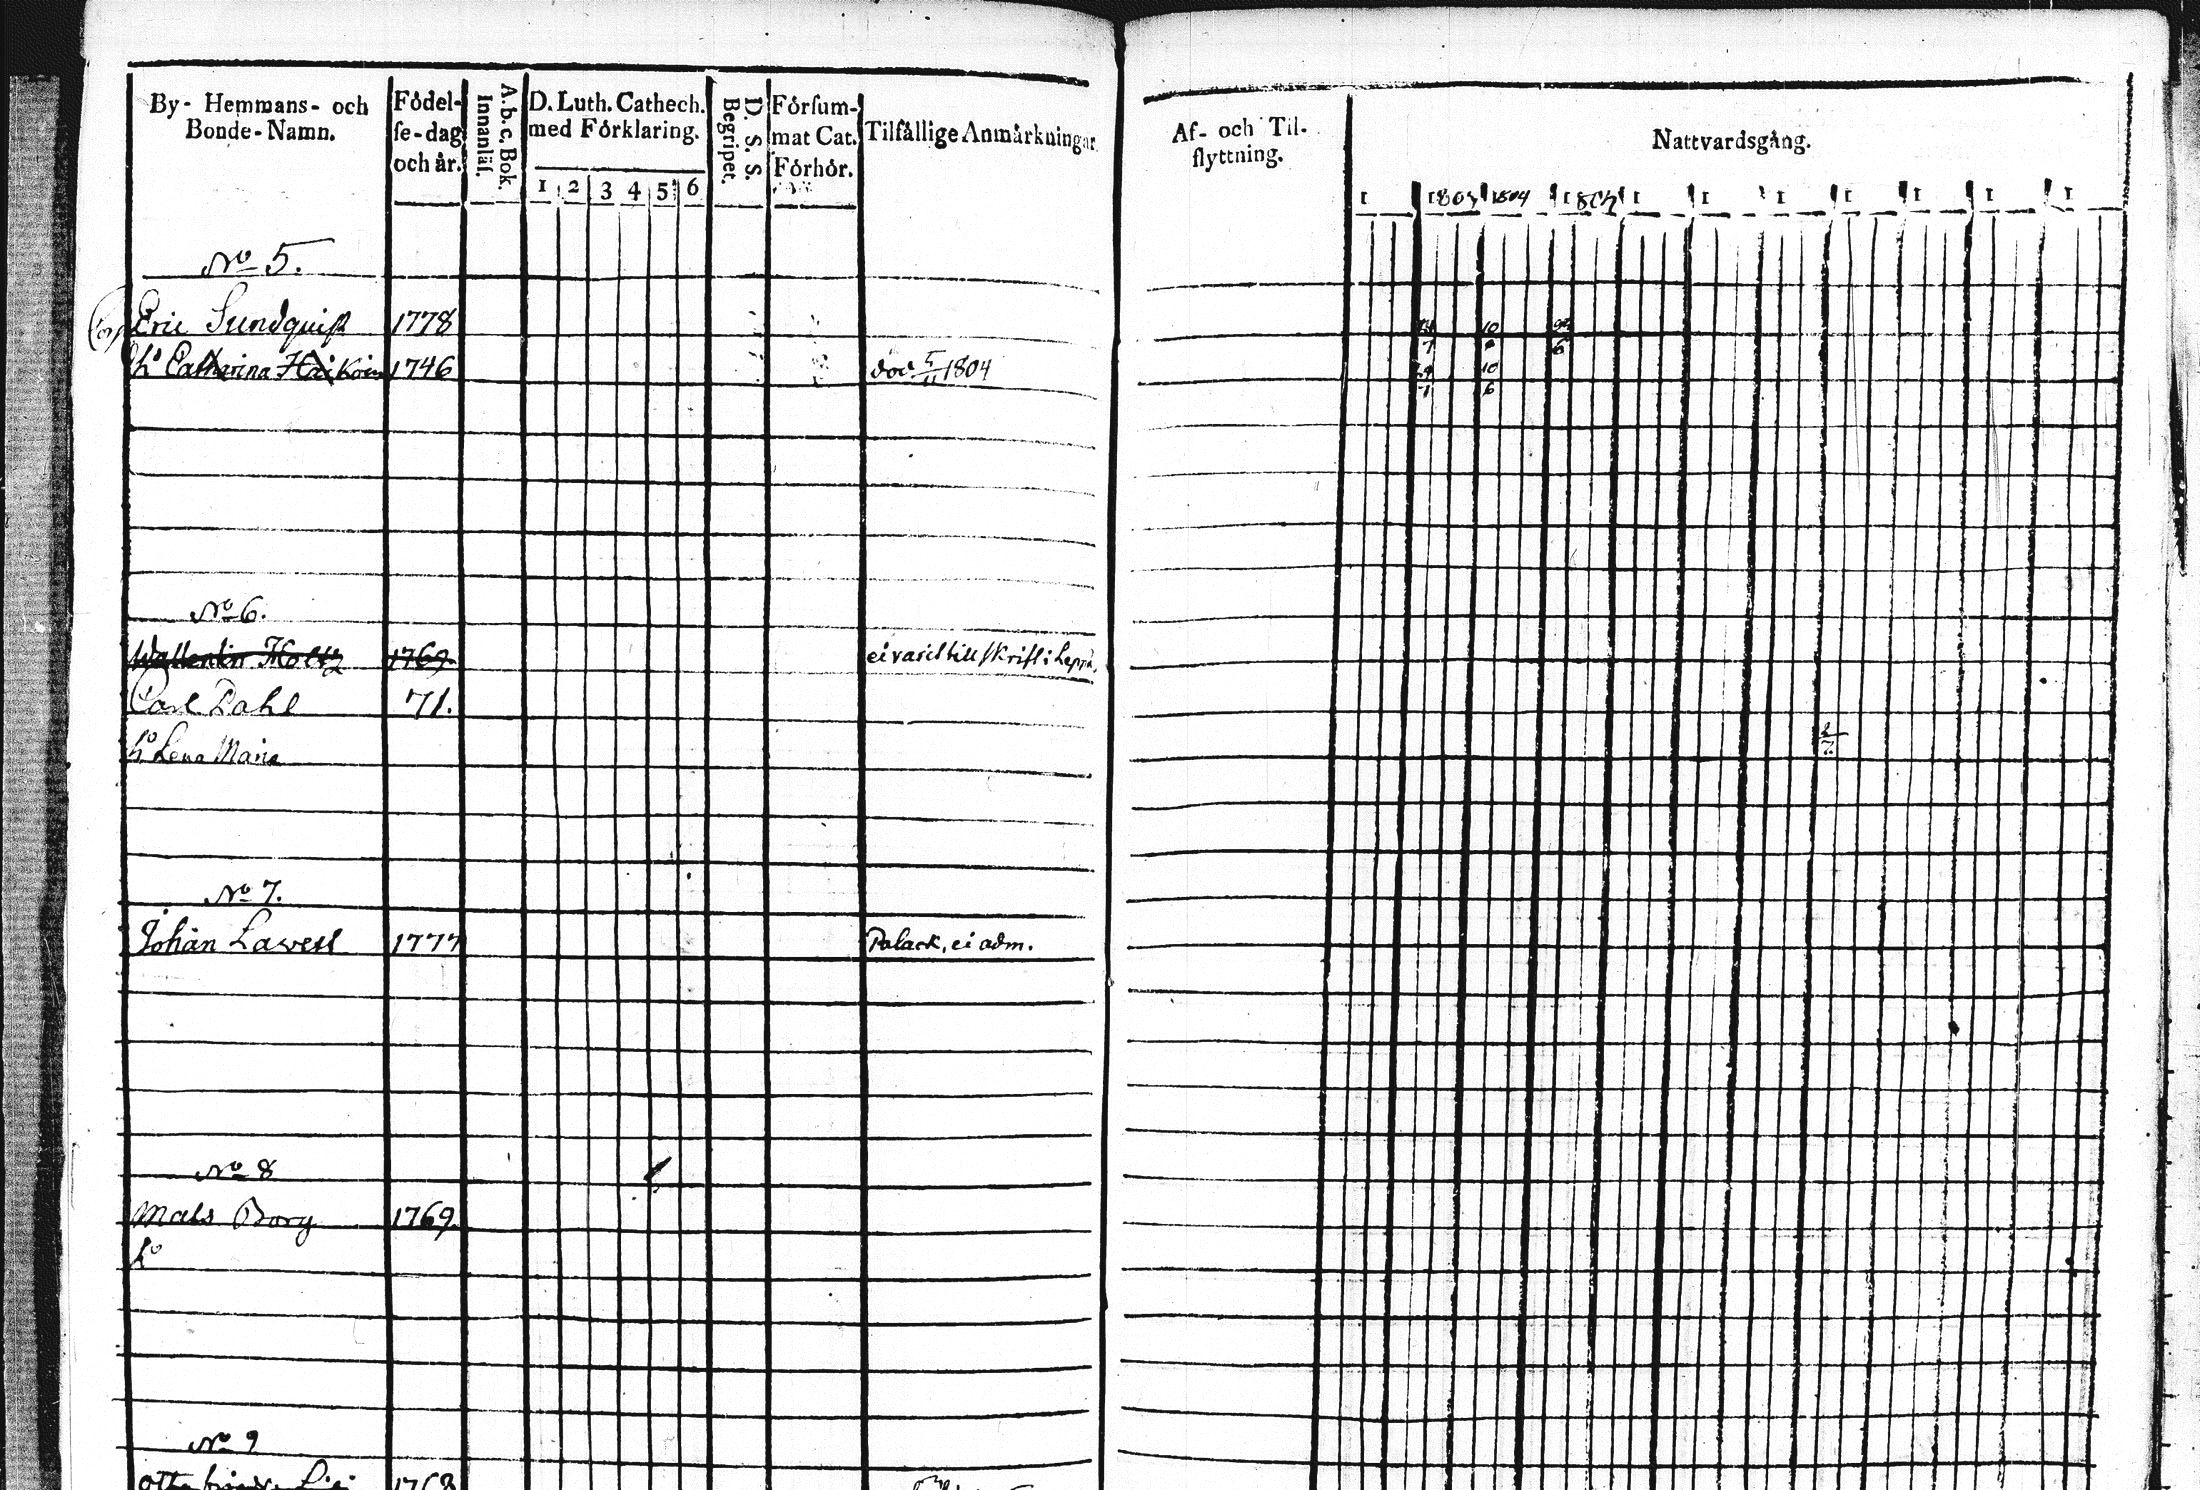 By- Hemmans- och
Bonde-Namn.
Födel-
se-dag
och år.
A. b. c. Bok.
Innanläs.
D. Luth. Cathech.
med Förklaring.
1 2 3 4 5 6
D. S. S.
Begripet.
Försum-
mat Cat.
Förhör.
Tilfällige Anmärkningar
Af- och Til-
flyttning.
Nattvardsgång.
1 1803 1804 1805 1 1 1 1 1 1 1
No 5.
Eric Sundquist 1778 10
7 6
h:o Catharina Häikoin 1746 död 5/11 1804 10
7 6
No 6.
Wallentin Holtz 1769. ei varit till skrift i
Carl Dahl 71.
h:o Lena Maria
No 7.
Johan Lawell 1777 Palack, ei adm.
No 8
Mats Borg 1769.
h:o
No 9
1768